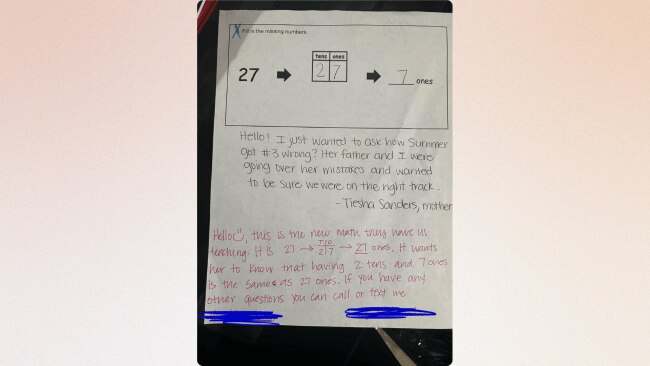 X Fill in the missing numbers.
tens ones
27 → 2 7 → 7 ones
Hello! I just wanted to ask how Summer
got #3 wrong? Her father and I were
going over her mistakes and wanted
to be sure we were on the right track.
-Tiesha Sanders, mother
Hello☺, this is the new math they have us
teaching. It is 27 → T|O 2|7 → 27 ones. It wants
her to know that having 2 tens and 7 ones
is the same as 27 ones. If you have any
other questions you can call or text me